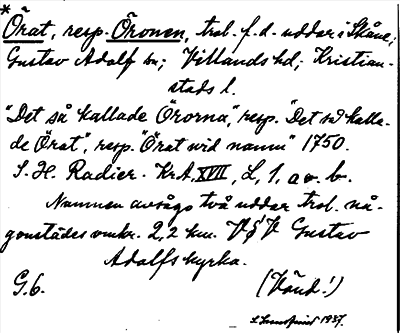 * Örat, resp. Öronen, trol. f. d. uddar i Skåne;
Gustav Adolf sn; Villands hd; Kristian-
stads l.
"Det så kallade Örorna", resp. "Det så kalla-
de Örat", resp. "Örat vid namn" 1750.
S. H. Radier. Kr. A. XVII, L, 1, a o. b.
Namnen avsågo två uddar trol. nå-
gonstädes omkr. 2,2 km. V§V Gustav
Adolfs kyrka.
G. 6. (Vänd!)
1937.